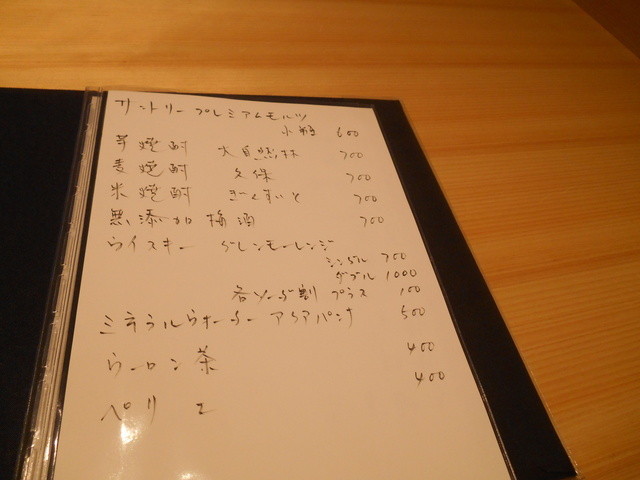 サントリー プレミアムモルツ
小瓶 600
芋焼酎 大自然林 700
麦焼酎 久保 700
米焼酎 ぎんすいと 700
無添加梅酒 700
ウイスキー グレンモーレンジ
シングル 700
ダブル 1000
各ソーダ割 プラス 100
ミネラルウォーター アクアパンナ 500
ウーロン茶 400
ペリエ 400